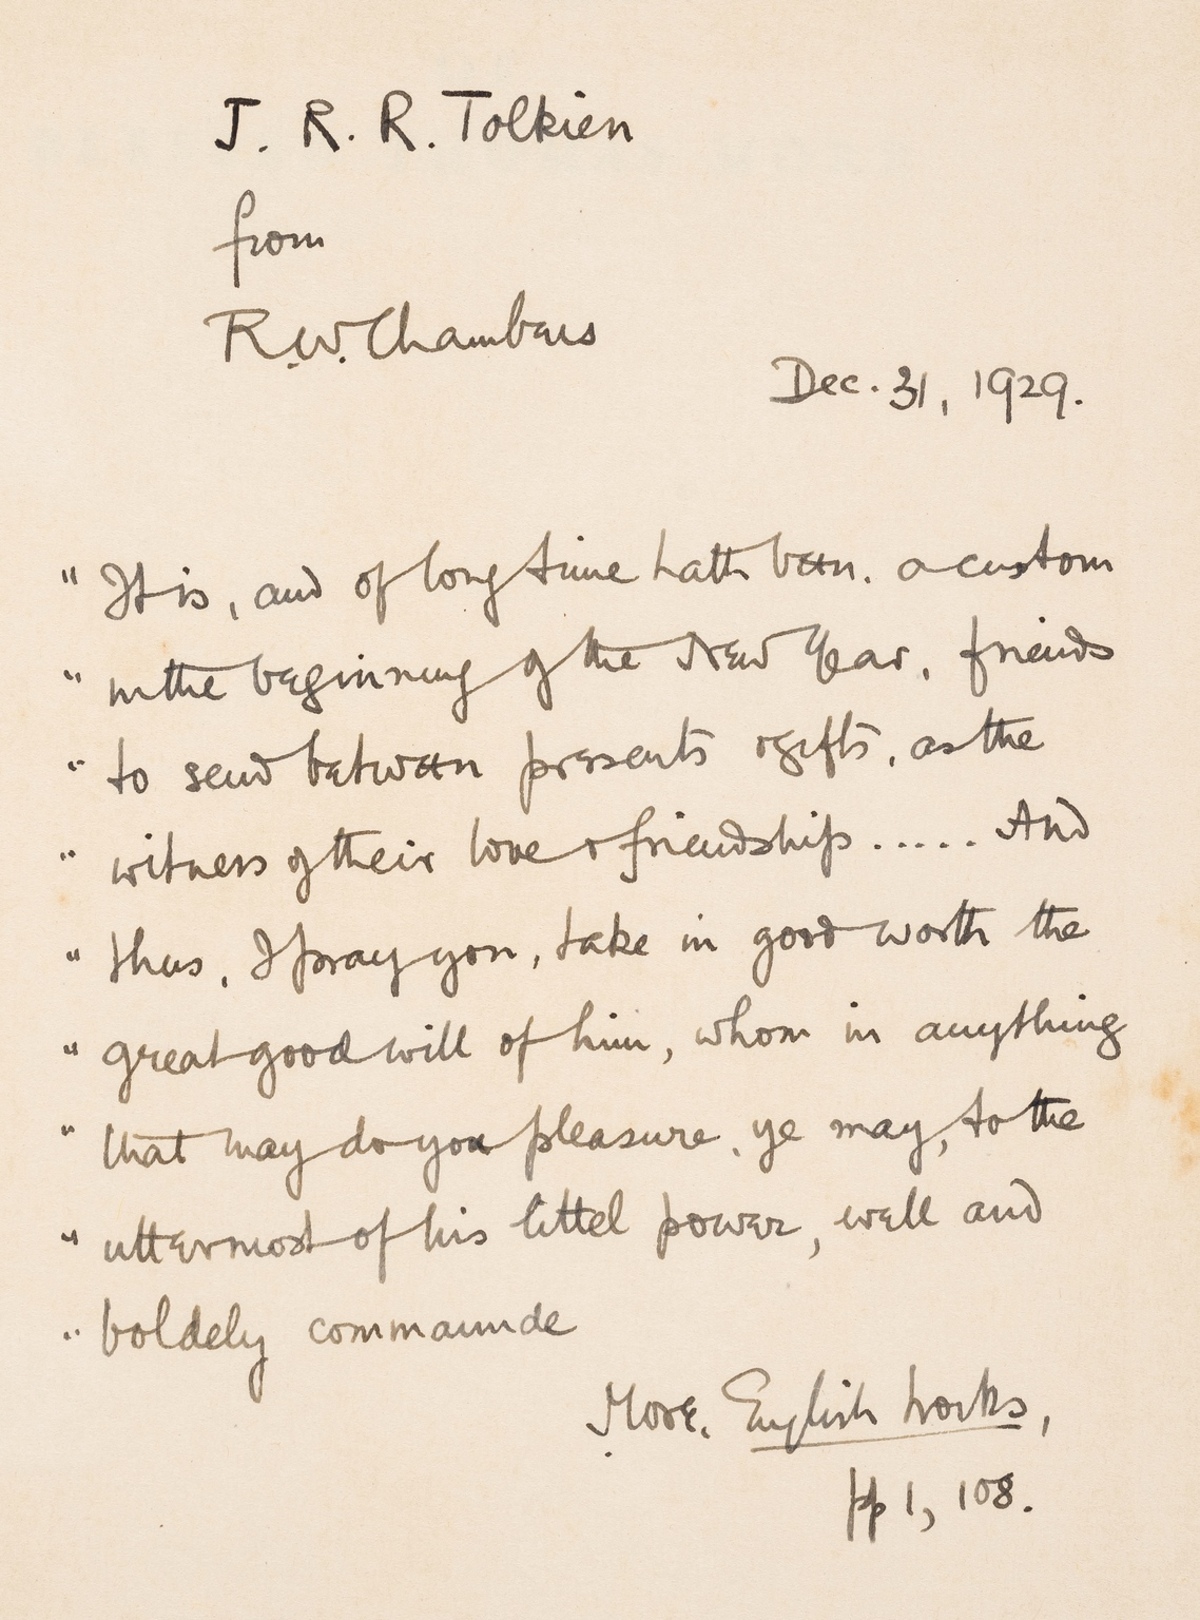 J. R. R. Tolkien
from
R.W. Chambers
Dec. 31, 1929.
" It is, and of long time hath been, a custom
" in the beginning of the New Year, friends
" to send between presents or gifts, as the
" witness of their love & friendship ..... And
" thus, I pray you, take in good worth the
" great good will of him, whom in anything
" that may do you pleasure, ye may, to the
" uttermost of his littel power, well and
" boldely commaunde
More. English Works,
pp 1, 108.